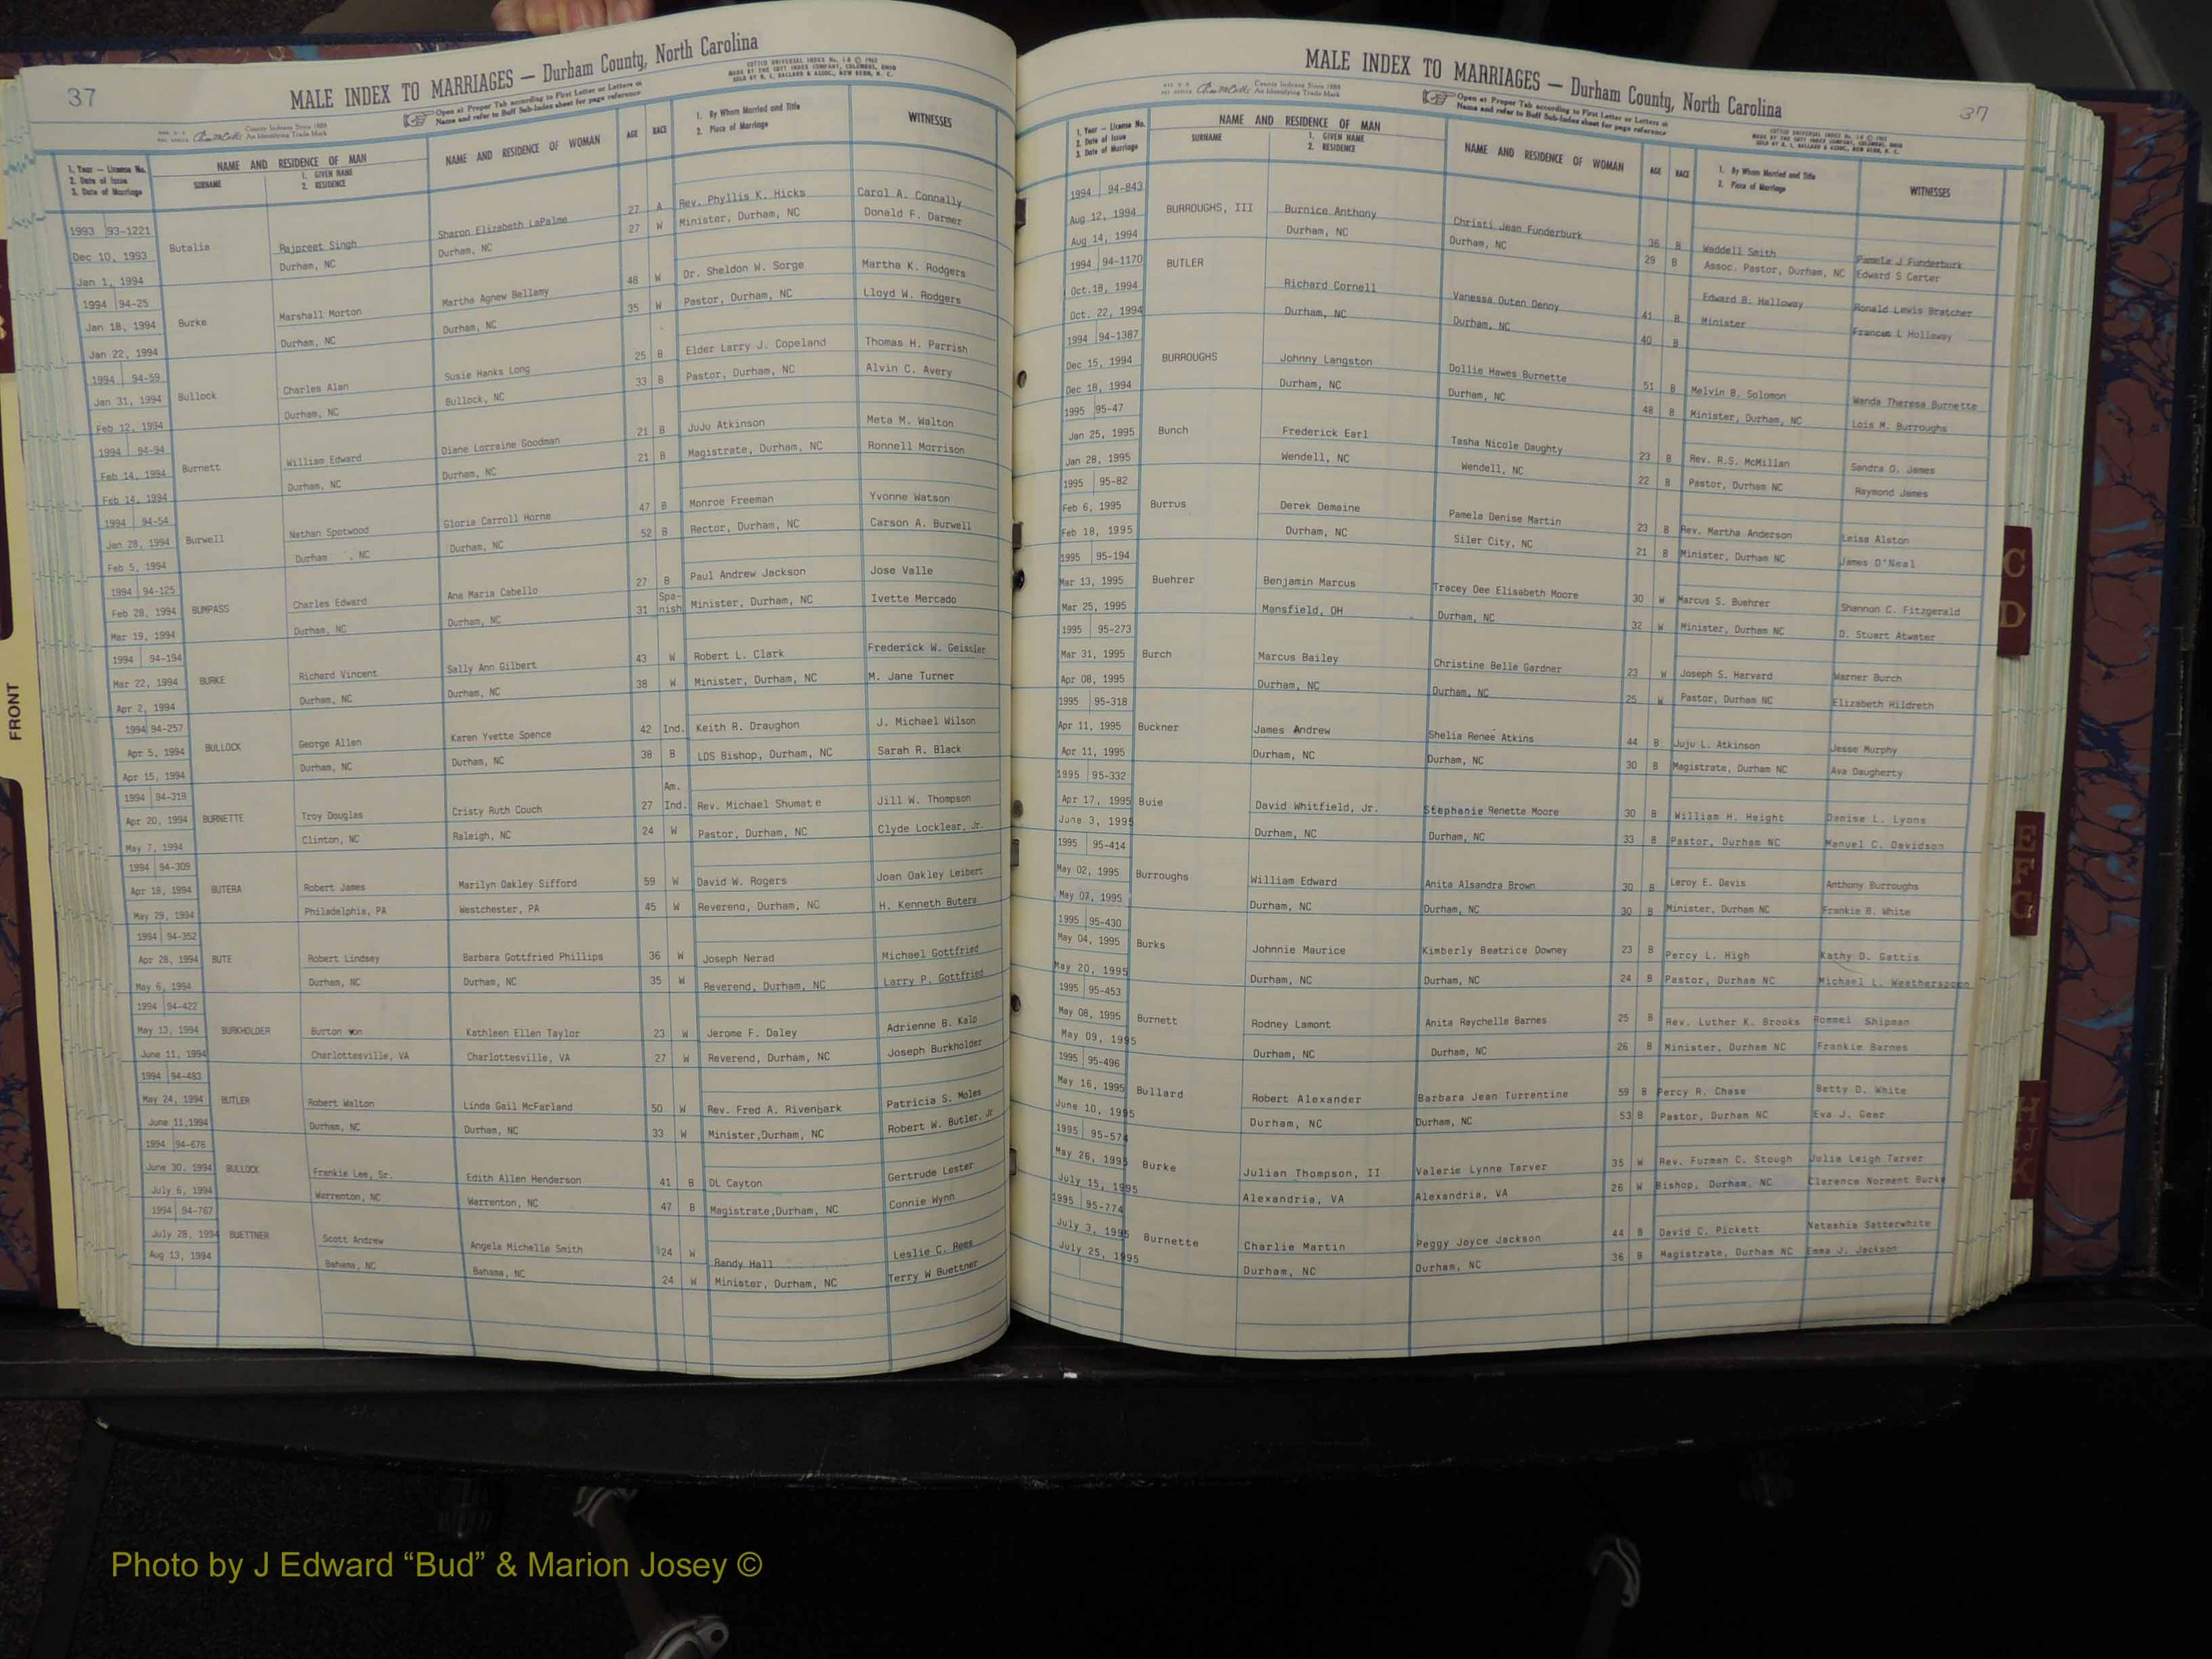 37
MALE INDEX TO MARRIAGES — Durham County, North Carolina
Open at Proper Tab according to First Letter or Letters of
Name and refer to Buff Sub-Index sheet for page reference
COTTCO UNIVERSAL INDEX No. 1-A © 1962
MADE BY THE COTT INDEX COMPANY, COLUMBUS, OHIO
SOLD BY R. L. BALLARD & ASSOC., NEW BERN, N. C.
County Indexes Since 1888
An Identifying Trade Mark
1. Year — License No. 2. Date of Issue 3. Date of Marriage
NAME AND RESIDENCE OF MAN
SURNAME 1. GIVEN NAME 2. RESIDENCE
NAME AND RESIDENCE OF WOMAN AGE RACE 1. By Whom Married and Title 2. Place of Marriage WITNESSES
1993 93-1221 Rev. Phyllis K. Hicks Carol A. Connally
Dec 10, 1993 Butalia Rajpreet Singh Sharon Elizabeth LaPalme 27 A Minister, Durham, NC Donald F. Darmer
Jan 1, 1994 Durham, NC Durham, NC 27 W
1994 94-25
Jan 18, 1994 Burke Marshall Morton Martha Agnew Bellamy 48 W Dr. Sheldon W. Sorge Martha K. Rodgers
Jan 22, 1994 Durham, NC Durham, NC 35 W Pastor, Durham, NC Lloyd W. Rodgers
1994 94-59
Jan 31, 1994 Bullock Charles Alan Susie Hanks Long 25 B Elder Larry J. Copeland Thomas H. Parrish
Feb 12, 1994 Durham, NC Bullock, NC 33 B Pastor, Durham, NC Alvin C. Avery
1994 94-94
Feb 14, 1994 Burnett William Edward Diane Lorraine Goodman 21 B JuJu Atkinson Meta M. Walton
Feb 14, 1994 Durham, NC Durham, NC 21 B Magistrate, Durham, NC Ronnell Morrison
1994 94-54
Jan 28, 1994 Burwell Nathan Spotwood Gloria Carroll Horne 47 B Monroe Freeman Yvonne Watson
Feb 5, 1994 Durham , NC Durham, NC 52 B Rector, Durham, NC Carson A. Burwell
1994 94-125
Feb 28, 1994 BUMPASS Charles Edward Ana Maria Cabello 27 B Paul Andrew Jackson Jose Valle
Mar 19, 1994 Durham, NC Durham, NC 31 Spa-nish Minister, Durham, NC Ivette Mercado
1994 94-194
Mar 22, 1994 BURKE Richard Vincent Sally Ann Gilbert 43 W Robert L. Clark Frederick W. Geissler
Apr 2, 1994 Durham, NC Durham, NC 38 W Minister, Durham, NC M. Jane Turner
1994 94-257
Apr 5, 1994 BULLOCK George Allen Karen Yvette Spence 42 Ind. Keith R. Draughon J. Michael Wilson
Apr 15, 1994 Durham, NC Durham, NC 38 B LDS Bishop, Durham, NC Sarah R. Black
1994 94-319
Apr 20, 1994 BURNETTE Troy Douglas Cristy Ruth Couch 27 Am. Ind. Rev. Michael Shumate Jill W. Thompson
May 7, 1994 Clinton, NC Raleigh, NC 24 W Pastor, Durham, NC Clyde Locklear, Jr.
1994 94-309
Apr 18, 1994 BUTERA Robert James Marilyn Oakley Sifford 59 W David W. Rogers Joan Oakley Leibert
May 29, 1994 Philadelphia, PA Westchester, PA 45 W Reverend, Durham, NC H. Kenneth Butera
1994 94-352
Apr 28, 1994 BUTE Robert Lindsey Barbara Gottfried Phillips 36 W Joseph Nerad Michael Gottfried
May 6, 1994 Durham, NC Durham, NC 35 W Reverend, Durham, NC Larry P. Gottfried
1994 94-422
May 13, 1994 BURKHOLDER Burton Von Kathleen Ellen Taylor 23 W Jerome F. Daley Adrienne B. Kalp
June 11, 1994 Charlottesville, VA Charlottesville, VA 27 W Reverend, Durham, NC Joseph Burkholder
1994 94-483
May 24, 1994 BUTLER Robert Walton Linda Gail McFarland 50 W Rev. Fred A. Rivenbark Patricia S. Moles
June 11,1994 Durham, NC Durham, NC 33 W Minister,Durham, NC Robert W. Butler, Jr
1994 94-676
June 30, 1994 BULLOCK Frankie Lee, Sr. Edith Allen Henderson 41 B DL Cayton Gertrude Lester
July 6, 1994 Warrenton, NC Warrenton, NC 47 B Magistrate,Durham, NC Connie Wynn
1994 94-767
July 28, 1994 BUETTNER Scott Andrew Angela Michelle Smith 24 W Randy Hall Leslie C. Rees
Aug 13, 1994 Bahama, NC Bahama, NC 24 W Minister, Durham, NC Terry W Buettner
37
MALE INDEX TO MARRIAGES — Durham County, North Carolina
County Indexes Since 1888
An Identifying Trade Mark
Open at Proper Tab according to First Letter or Letters of
Name and refer to Buff Sub-Index sheet for page reference
COTTCO UNIVERSAL INDEX No. 1-A © 1962
MADE BY THE COTT INDEX COMPANY, COLUMBUS, OHIO
SOLD BY R. L. BALLARD & ASSOC., NEW BERN, N. C.
1. Year — License No. 2. Date of Issue 3. Date of Marriage
NAME AND RESIDENCE OF MAN
SURNAME 1. GIVEN NAME 2. RESIDENCE
NAME AND RESIDENCE OF WOMAN AGE RACE 1. By Whom Married and Title 2. Place of Marriage WITNESSES
1994 94-843
Aug 12, 1994 BURROUGHS, III Burnice Anthony Christi Jean Funderburk 36 B Waddell Smith Pamela J Funderburk
Aug 14, 1994 Durham, NC Durham, NC 29 B Assoc. Pastor, Durham, NC Edward S Carter
1994 94-1170 BUTLER
Oct.18, 1994 Richard Cornell Vanessa Outen Denny 41 B Edward B. Halloway Ronald Lewis Bratcher
Oct. 22, 1994 Durham, NC Durham, NC 40 B Minister Frances L Holloway
1994 94-1387
Dec 15, 1994 BURROUGHS Johnny Langston Dollie Hawes Burnette 51 B Melvin B. Solomon Wanda Theresa Burnette
Dec 18, 1994 Durham, NC Durham, NC 48 B Minister, Durham, NC Lois M. Burroughs
1995 95-47
Jan 25, 1995 Bunch Frederick Earl Tasha Nicole Daughty 23 B Rev. R.S. McMillan Sandra G. James
Jan 28, 1995 Wendell, NC Wendell, NC 22 B Pastor, Durham NC Raymond James
1995 95-82
Feb 6, 1995 Burrus Derek Demaine Pamela Denise Martin 23 B Rev. Martha Anderson Leisa Alston
Feb 18, 1995 Durham, NC Siler City, NC 21 B Minister, Durham NC James O'Neal
1995 95-194
Mar 13, 1995 Buehrer Benjamin Marcus Tracey Dee Elisabeth Moore 30 W Marcus S. Buehrer Shannon C. Fitzgerald
Mar 25, 1995 Mansfield, OH Durham, NC 32 W Minister, Durham NC D. Stuart Atwater
1995 95-273
Mar 31, 1995 Burch Marcus Bailey Christine Belle Gardner 23 W Joseph S. Harvard Warner Burch
Apr 08, 1995 Durham, NC Durham, NC 25 W Pastor, Durham NC Elizabeth Hildreth
1995 95-318
Apr 11, 1995 Buckner James Andrew Shelia Renee Atkins 44 B Juju L. Atkinson Jesse Murphy
Apr 11, 1995 Durham, NC Durham, NC 30 B Magistrate, Durham NC Ava Daugherty
1995 95-332
Apr 17, 1995 Buie David Whitfield, Jr. Stephanie Renette Moore 30 B William H. Height Denise L. Lyons
June 3, 1995 Durham, NC Durham, NC 33 B Pastor, Durham NC Manuel C. Davidson
1995 95-414
May 02, 1995 Burroughs William Edward Anita Alsandra Brown 30 B Leroy E. Davis Anthony Burroughs
May 07, 1995 Durham, NC Durham, NC 30 B Minister, Durham NC Frankie B. White
1995 95-430
May 04, 1995 Burks Johnnie Maurice Kimberly Beatrice Downey 23 B Percy L. High Kathy D. Gattis
May 20, 1995 Durham, NC Durham, NC 24 B Pastor, Durham NC Michael L. Weatherspoon
1995 95-453
May 08, 1995 Burnett Rodney Lamont Anita Raychelle Barnes 25 B Rev. Luther K. Brooks Rommel Shipman
May 09, 1995 Durham, NC Durham, NC 26 B Minister, Durham NC Frankie Barnes
1995 95-496
May 16, 1995 Bullard Robert Alexander Barbara Jean Turrentine 59 B Percy R. Chase Betty D. White
June 10, 1995 Durham, NC Durham, NC 53 B Pastor, Durham NC Eva J. Geer
1995 95-574
May 26, 1995 Burke Julian Thompson, II Valerie Lynne Tarver 35 W Rev. Furman C. Stough Julia Leigh Tarver
July 15, 1995 Alexandria, VA Alexandria, VA 26 W Bishop, Durham, NC Clarence Norment Burke
1995 95-774
July 3, 1995 Burnette Charlie Martin Peggy Joyce Jackson 44 B David C. Pickett Natashia Satterwhite
July 25, 1995 Durham, NC Durham, NC 36 B Magistrate, Durham NC Emma J. Jackson
FRONT
C
D
E
F
G
H
I
J
K
Photo by J Edward “Bud” & Marion Josey ©